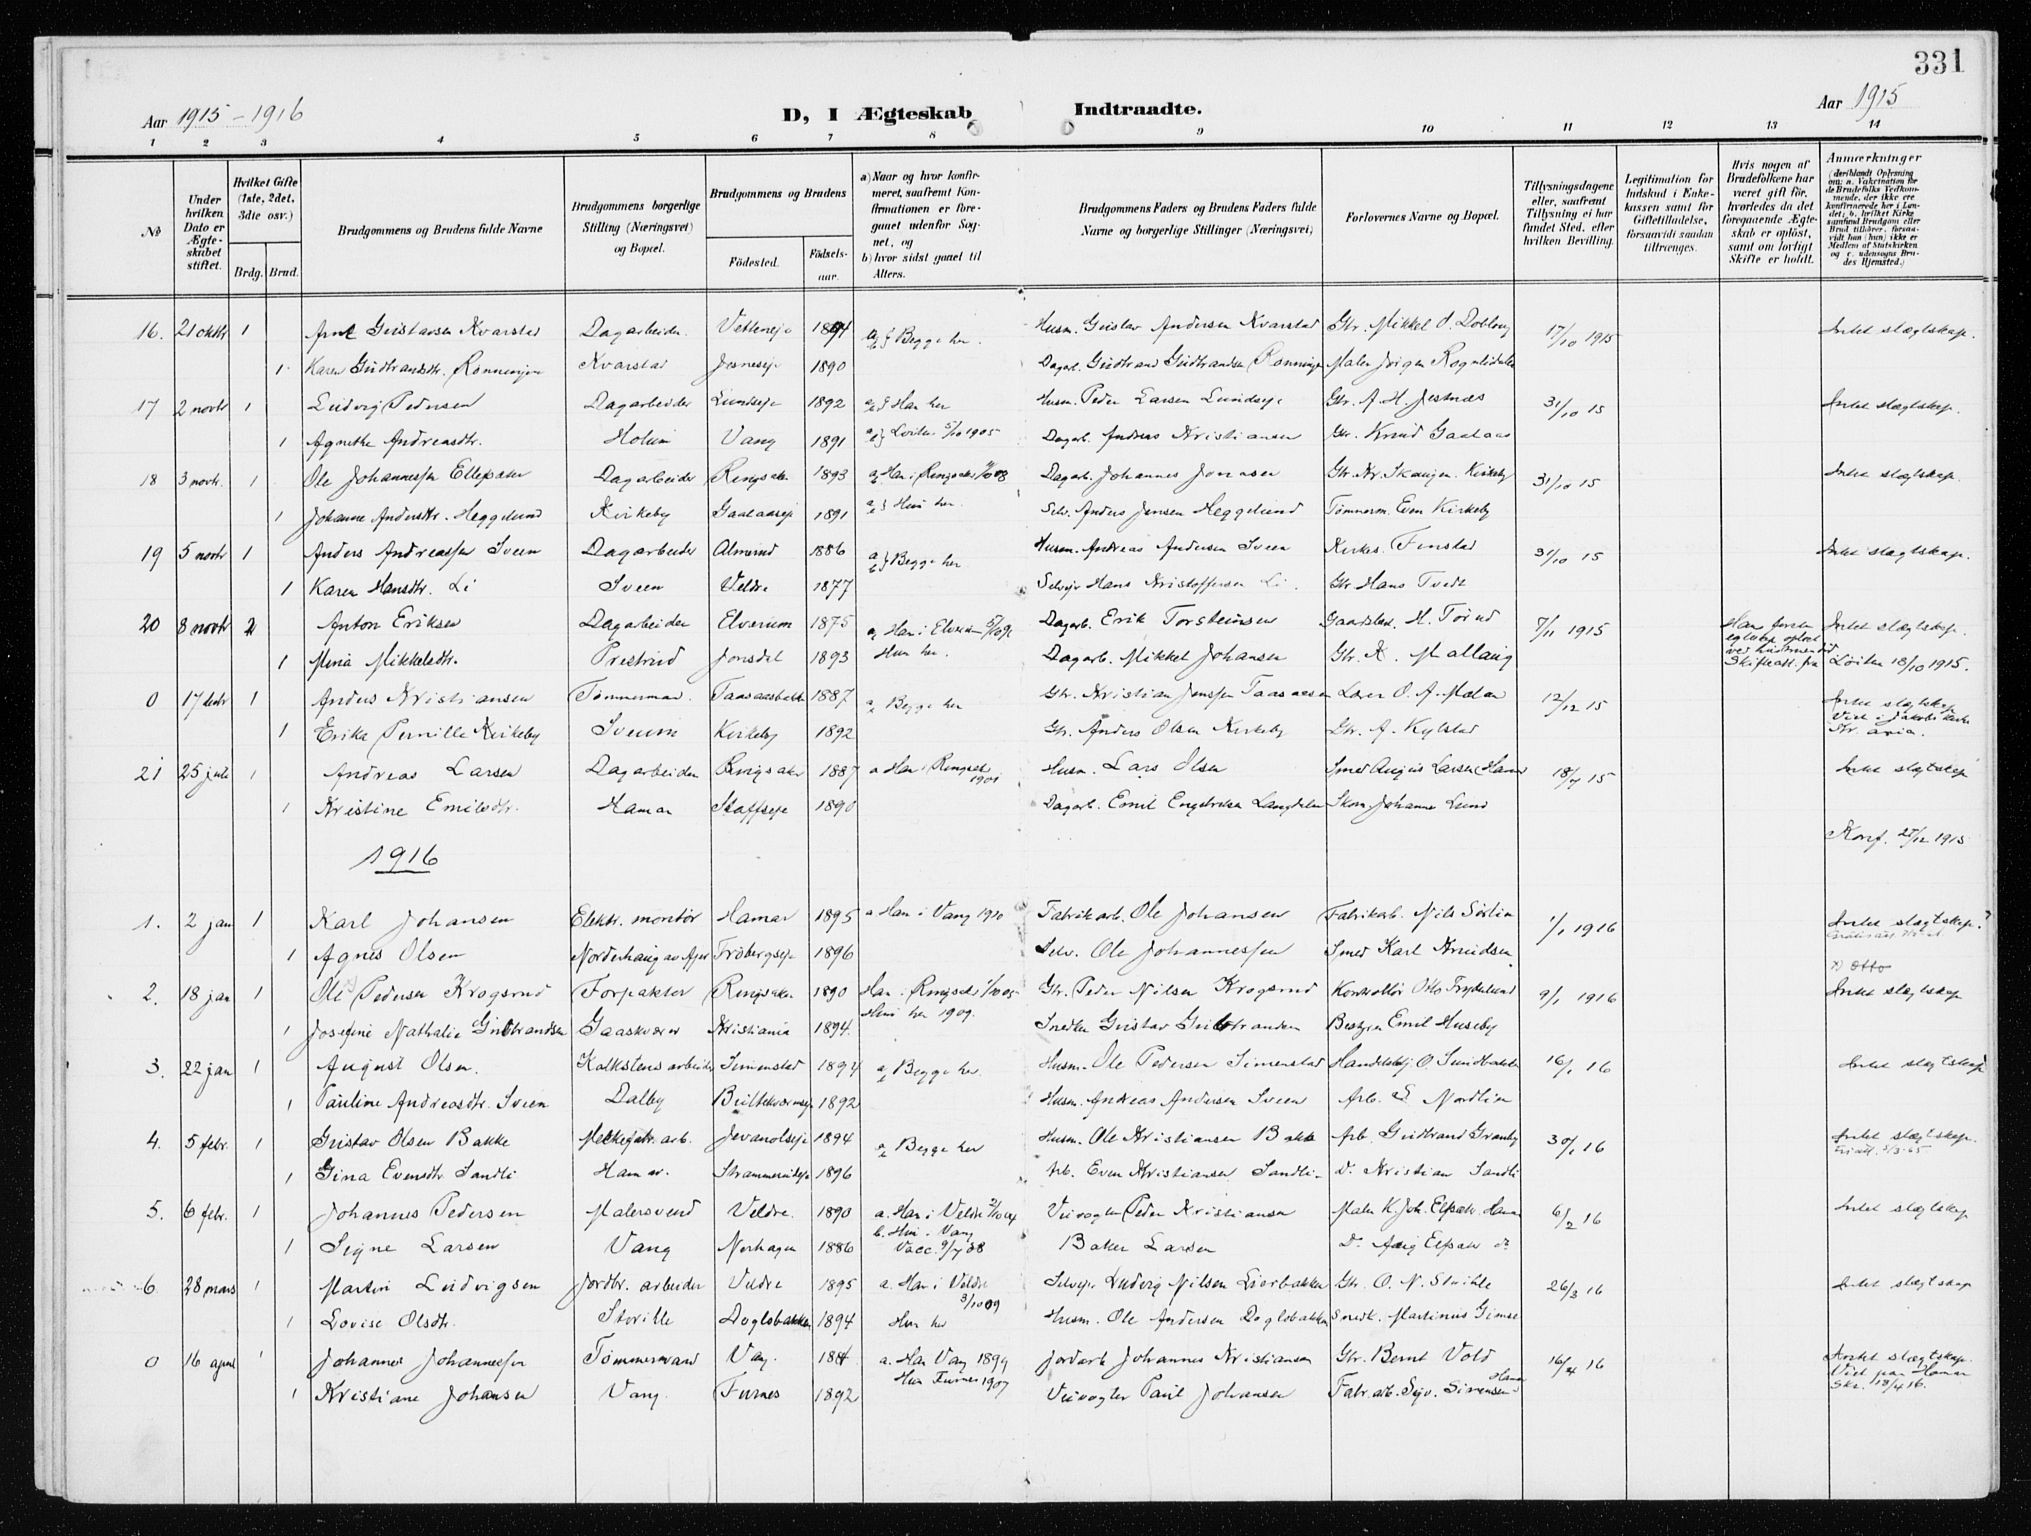 331
Aar 1915-1916 D, I Ægteskab Indtraadte. Aar 1915
1 2 3 4 5 6 7 8 9 10 11 12 13 14
№
Under hvilken Dato er Ægteskabet stiftet.
Hvilket Gifte (1ste, 2det, 3die osv.)
Brdg. Brud.
Brudgommens og Brudens fulde Navne
Brudgommens borgerlige Stilling (Næringsvei) og Bopæl.
Brudgommens og Brudens
Födested. Födsels-aar.
a) Naar og hvor konfirmeret, saafremt Konfirmationen er foregaaet udenfor Sognet, og
b) hvor sidst gaaet til Alters.
Brudgommens Faders og Brudens Faders fulde Navne og borgerlige Stillinger (Næringsvei)
Forlovernes Navne og Bopæl.
Tillysningsdagene eller, saafremt Tillysning ei har fundet Sted, efter hvilken Bevilling.
Legitimation for Indskud i Enkekassen samt for Giftetilladelse, forsaavidt saadan tiltrænges.
Hvis nogen af Brudefolkene har været gift för, hvorledes da det foregaaende Ægteskab er oplöst, samt om lovligt Skifte er holdt.
Anmærkninger (deriblandt Oplysning om: a. Vakcination for de Brudefolks Vedkommende, der ikke ere konfirmerede her i Landet; b. hvilket Kirkesamfund Brudgom eller Brud tilhörer, forsaavidt han (hun) ikke er Medlem af Statskirken og c. udensogns Brudes Hjemsted.)
16. 21 oktbr 1 Gustavsen Kvarstad Dagarbeider 1894 Begge her. Husm. Gustav Andersen Kvarstad Gbr. Mikkel O. 17/10 1915 Intet slægtskap.
1 Karen Gudbrandsdtr. Rønningen Kvarstad 1890 Dagarb. Gudbrand Gudbrandsen Rønningen Maler Jørgen
17 2 novbr 1 Ludvig Pedersen Dagarbeider Lundseje 1892 Han her Husm. Peder Larsen Lundseje Gbr. A. H. Jesnes 31/10 15 Intet slægtskap.
1 Agnethe Andreasdtr. Holm Vang 1891 Løiten 5/10 1905 Dagarb. Andreas Kristiansen Gbr. Knud Gaalaas
18 3 novbr. 1 Ole Johannessen Ellepaker Dagarbeider Ringsaker 1893 Han i Ringsaker Dagarb. Johannes Jonasen Gbr. Kr. Skaugen. Kirkeby 31/10 15 Intet slægtskap.
1 Johanne Andersdtr. Heggelund Kirkeby Gaalaaseje 1891 Hun her. Selv. Anders Jensen Heggelund Tømmerm. Even Kirkeby
19 5 novbr 1 Anders Andreassen Sveen Dagarbeider Almerud 1886 Begge her Husm. Andreas Andersen Sveen Kirkes. Finstad 31/10 15 Intet slægtskap.
1 Karen Hansdtr. Li Sveen Veldre 1877 Selvejer Hans Kristoffersen Li. Gbr Hans Tvedt
20 8 novbr 2 Anton Eriksen Dagarbeider Elverum 1875 Han i Elverum Dagarb. Erik Torsteinsen Gaardsbest. H. Torud 7/11 1915 Han første egteskap opløst ved hustruens død Intet slægtskap.
1 Maria Mikkelsdtr. Prestrud Jønsdal 1893 Hun her. Dagarb. Mikkel Johansen Gbr. K. Mallaug Skifteatt. fra Løiten 18/10 1915.
0 17 decbr 1 Anders Kristiansen Tømmermand. Taasaasbakken 1887 Begge her Gbr. Kristian Jenssen Taasaasen Lærer O. A. Mælum 12/12 15 Intet slægtskap
1 Erika Pernille Kirkeby Sveum Kirkeby 1892 Gbr. Anders Olsen Kirkeby Gbr. A. Kylstad Viet i Jakobs kirke
21 25 juli 1 Andreas Larsen Dagarbeider Ringsaker 1887 a Han i Ringsak. 1901 Husm. Lars Olsen Smed August Larsen Hamar 18/7 15 Intet slægtskap
1 Kristine Emilsdtr. Hamar Staffseje 1890 Dagarb. Emil Engebretsen Langdalen Skom. Johannes Lund
Konf. 27/12 1915
1916
1. 2 jan 1 Karl Johansen Elektr. montør Hamar 1895 a Han i Vang 1910 Fabrikarb. Ole Johansen Fabrikarb. Nils Sørlie 1/1 1916 Intet slægtskap?
1 Agnes Olsen Norderhaug av Ajer Frøbergseje 1896 Selv. Ole Johannessen Smed Karl Knudsen
x) Otto
2. 18 jan 1 Ole Pedersen Krogsrud Forpakter Ringsaker 1890 Han i Ringsaker Gbr. Peder Nilsen Krogsrud Kontrollør Otto Frydenlund 9/1 1916 Intet slægtskap
1 Josefine Nathalie Gulbrandsen Gaaskværn Kristiania 1894. Hun her 1909. Snedker Gustav Gulbrandsen Bestyrer Emil Huseby
3. 22 jan 1 August Olsen. Kalkstensarbeider Simenstad 1894 Begge her. Husm. Ole Pedersen Simenstad Handelsbetj. O. Sundbakken 16/1 16 Intet slægtskap
1 Pauline Andreasdtr. Sveen Dalby 1892 Husm. Andreas Andersen Sveen Arb. E. Nordlien
4. 5 febr. 1 Gustav Olsen Bakke Melkefabr. arb. Jevanolseje 1894 Begge her Husm. Ole Kristiansen Bakke Arb. Gudbrand Granby 30/1 16 Intet slægtskap.
1 Gina Evensdtr Sandli Hamar. 1896 Arb. Even Kristiansen Sandli D. Kristian Sandli
5. 6 febr. 1 Johannes Pedersen Malersvend Veldre 1890 a. Han i Veldre Veivogter Peder Kristiansen Maler K. Joh. Elfsaker Hamar 6/2 16 Intet slægtskap
1 Signe Larsen Vang Norhagen 1886 b. Hun i Vang Vacc. 9/7 88 Baker Larsen D. Aug Elfsaker do
6 28 mars 1 Martin Ludvigsen Jordbr. arbeider Veldre 1895 a. Han i Veldre 3/10 09 Selvejer Ludvig Nilsen Lierbakken Gbr. O. N. Stuhle 26/3 16 Intet slægtskap
1 Lovise Olsdtr. Storihle Doglobakken 1894 Hun her Husm. Ole Andersen Doglobakken Snedk. Martinius Gimse
0 16 april 1 Johannes Johannessen Tømmermand Vang. a. Han Vang 1899 Jordarb Johannes Kristiansen Gbr. Bernt Vold 16/4 16 Intet slægtskap.
1 Kristiane Johansen Vang. Furnes 1892 Hun Furnes 1907 Veivogter Paul Johansen Fabr. arb. Sigv. Simensen Hamar Viet paa Hamar Skr. 18/4 16.